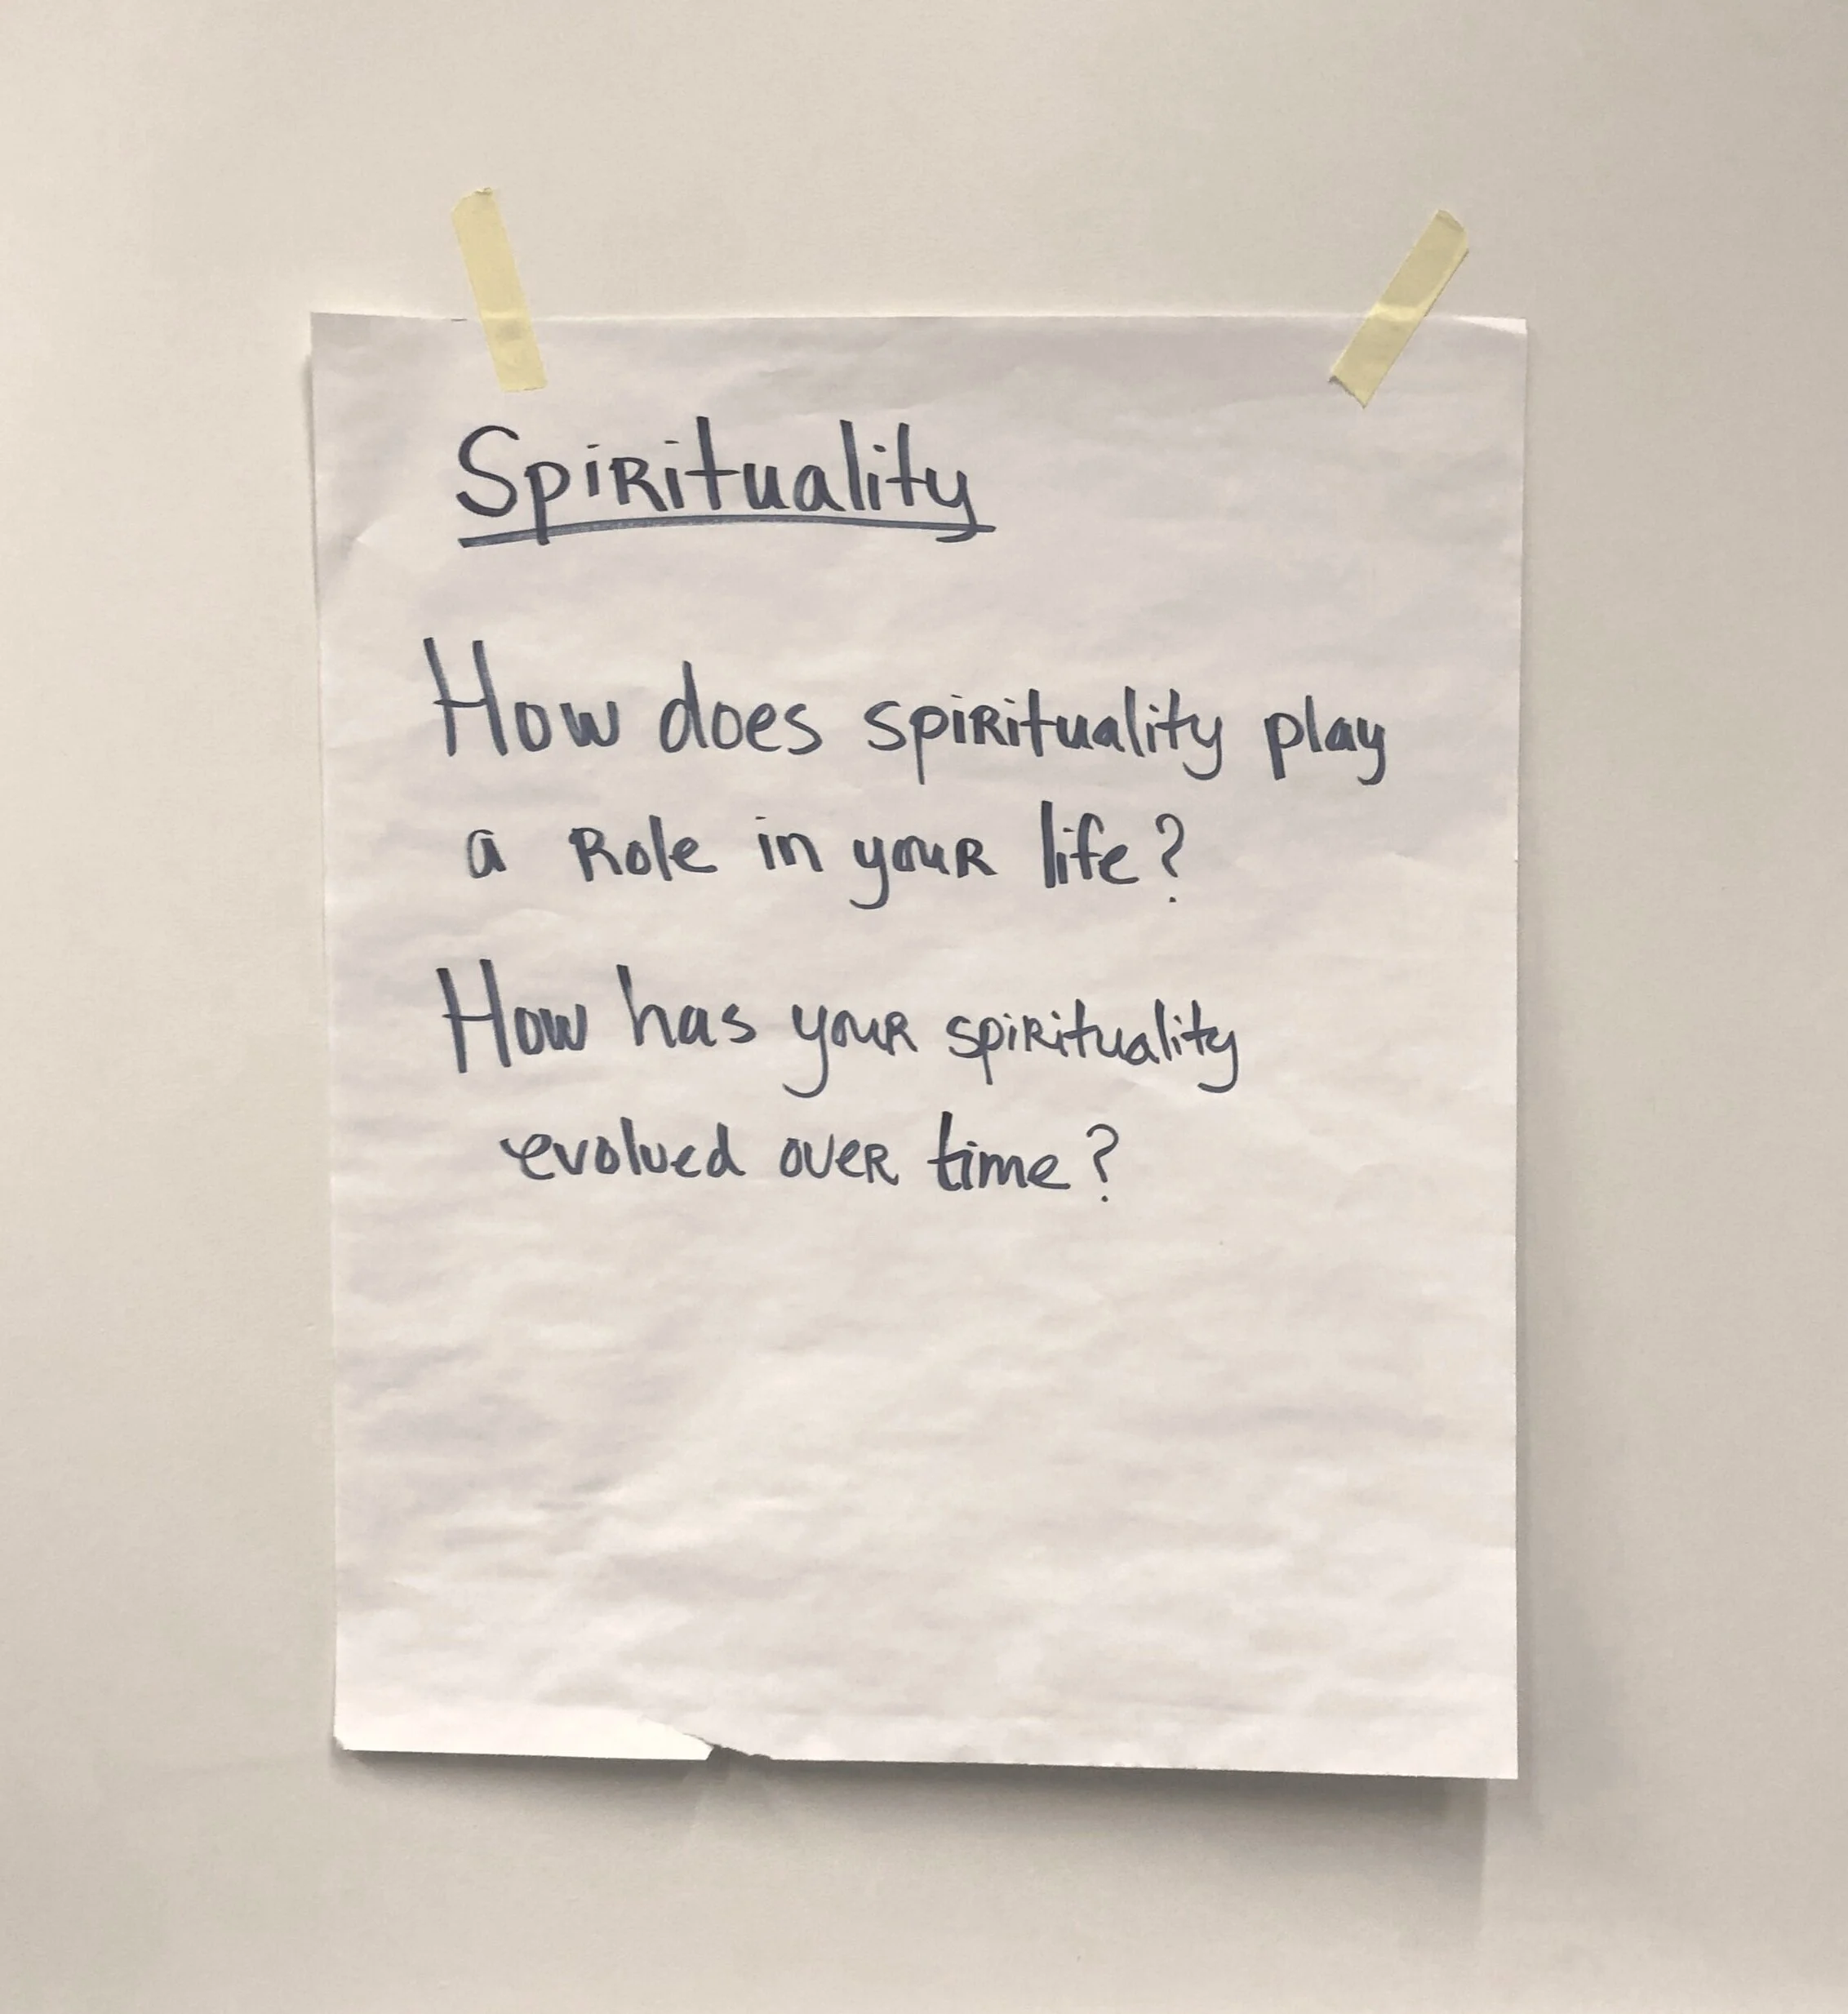 Spirituality
How does spirituality play
a Role in your life?
How has your spirituality
evolved over time?